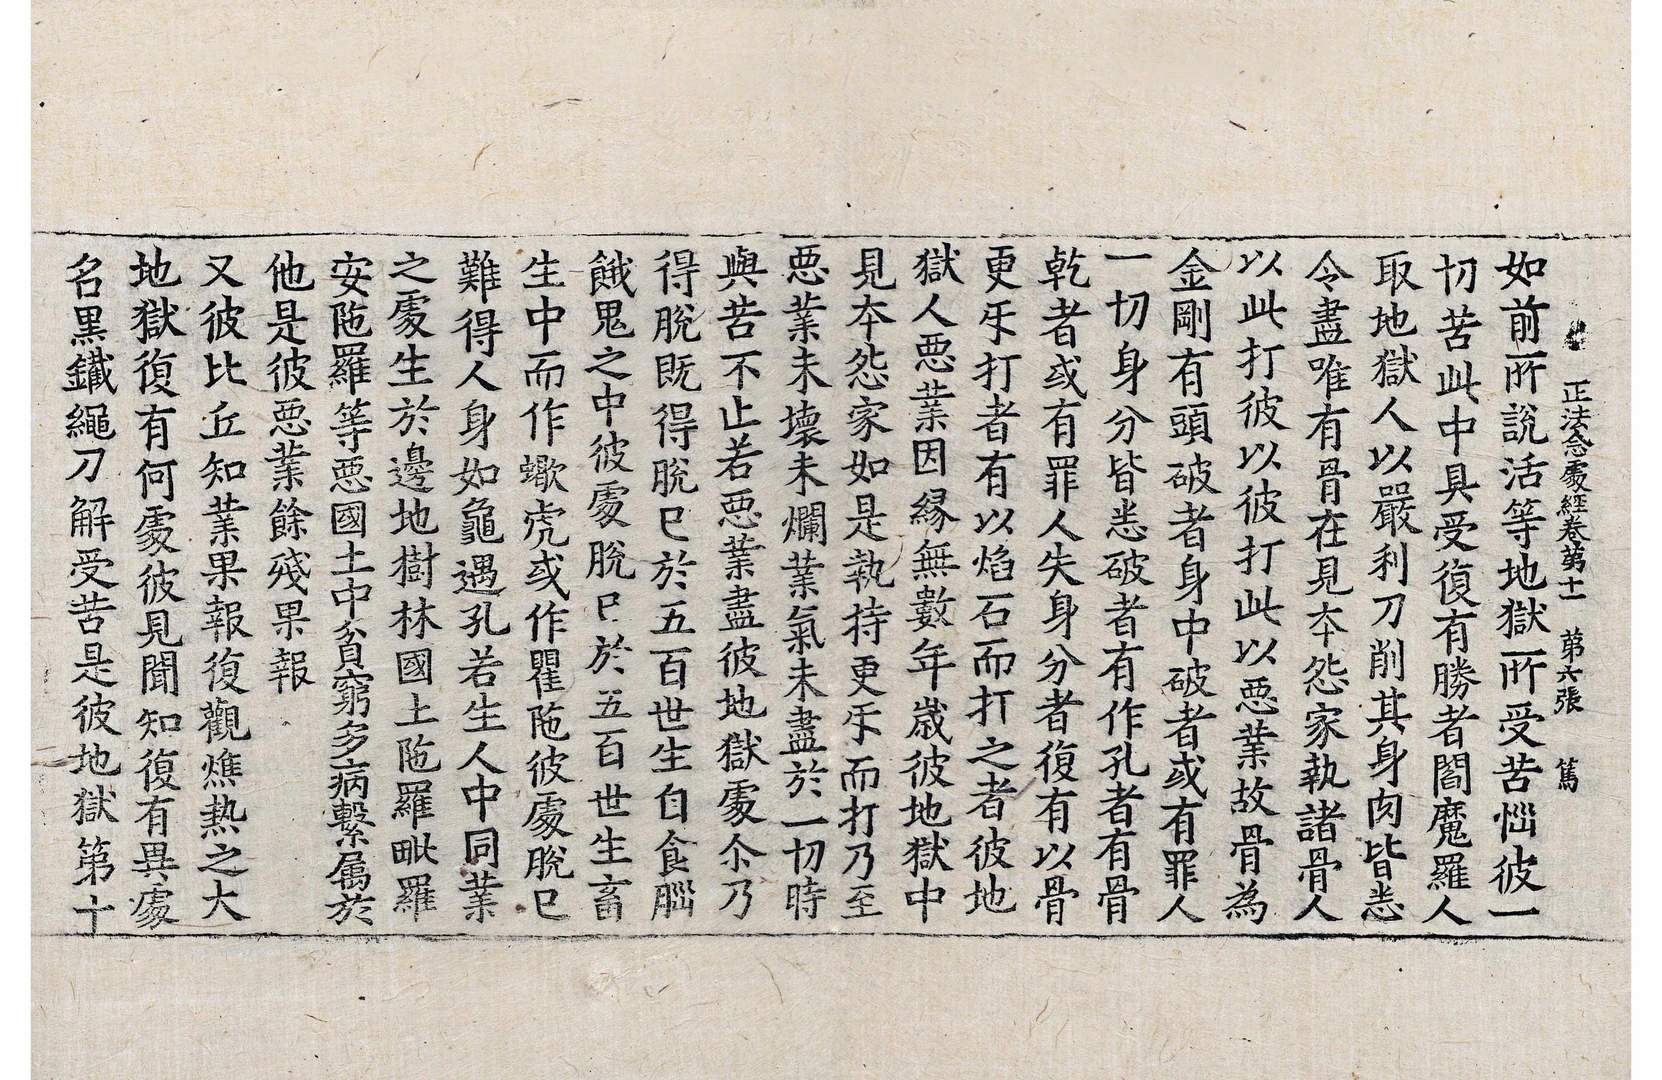 正法念處經卷第十一 第六張 篤
如前所說活等地獄所受苦惱彼一
切苦此中具受復有勝者閻魔羅人
取地獄人以嚴利刀削其身肉皆悉
令盡唯有骨在見本怨家執諸骨人
以此打彼以彼打此以惡業故骨為
金剛有頭破者身中破者或有罪人
一切身分皆悉破者有作孔者有骨
乾者或有罪人失身分者復有以骨
更互打者有以焰石而打之者彼地
獄人惡業因緣無數年歲彼地獄中
見本怨家如是執持更互而打乃至
惡業未壞未爛業氣未盡於一切時
與苦不止若惡業盡彼地獄處尒乃
得脫既得脫已於五百世生自食腦
餓鬼之中彼處脫已於五百世生畜
生中而作蠍虎或作瞿陁彼處脫已
難得人身如龜遇孔若生人中同業
之處生於邊地樹林國土陁羅毗羅
安陁羅等惡國土中貧窮多病繫属於
他是彼惡業餘殘果報
又彼比丘知業果報復觀燋熱之大
地獄復有何處彼見聞知復有異處
名黑鐵繩刀解受苦是彼地獄第十